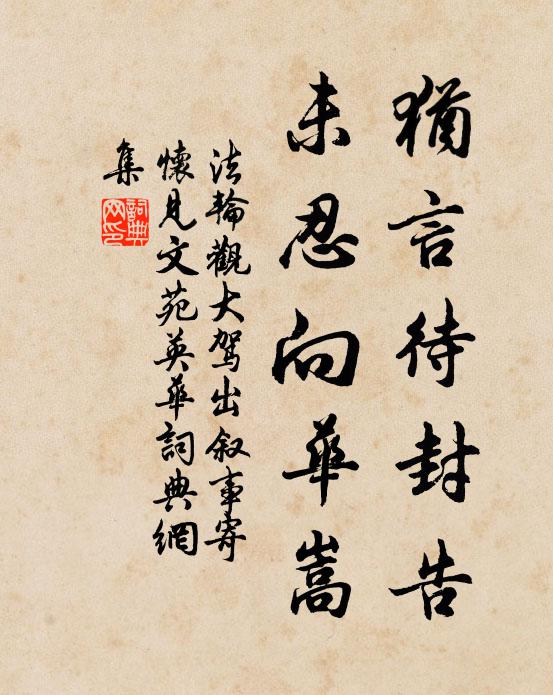 猶言待封告
未忍向華嵩
法輪觀大駕出叙事寄
懷見文苑英華詞典網
集
詞典
网印